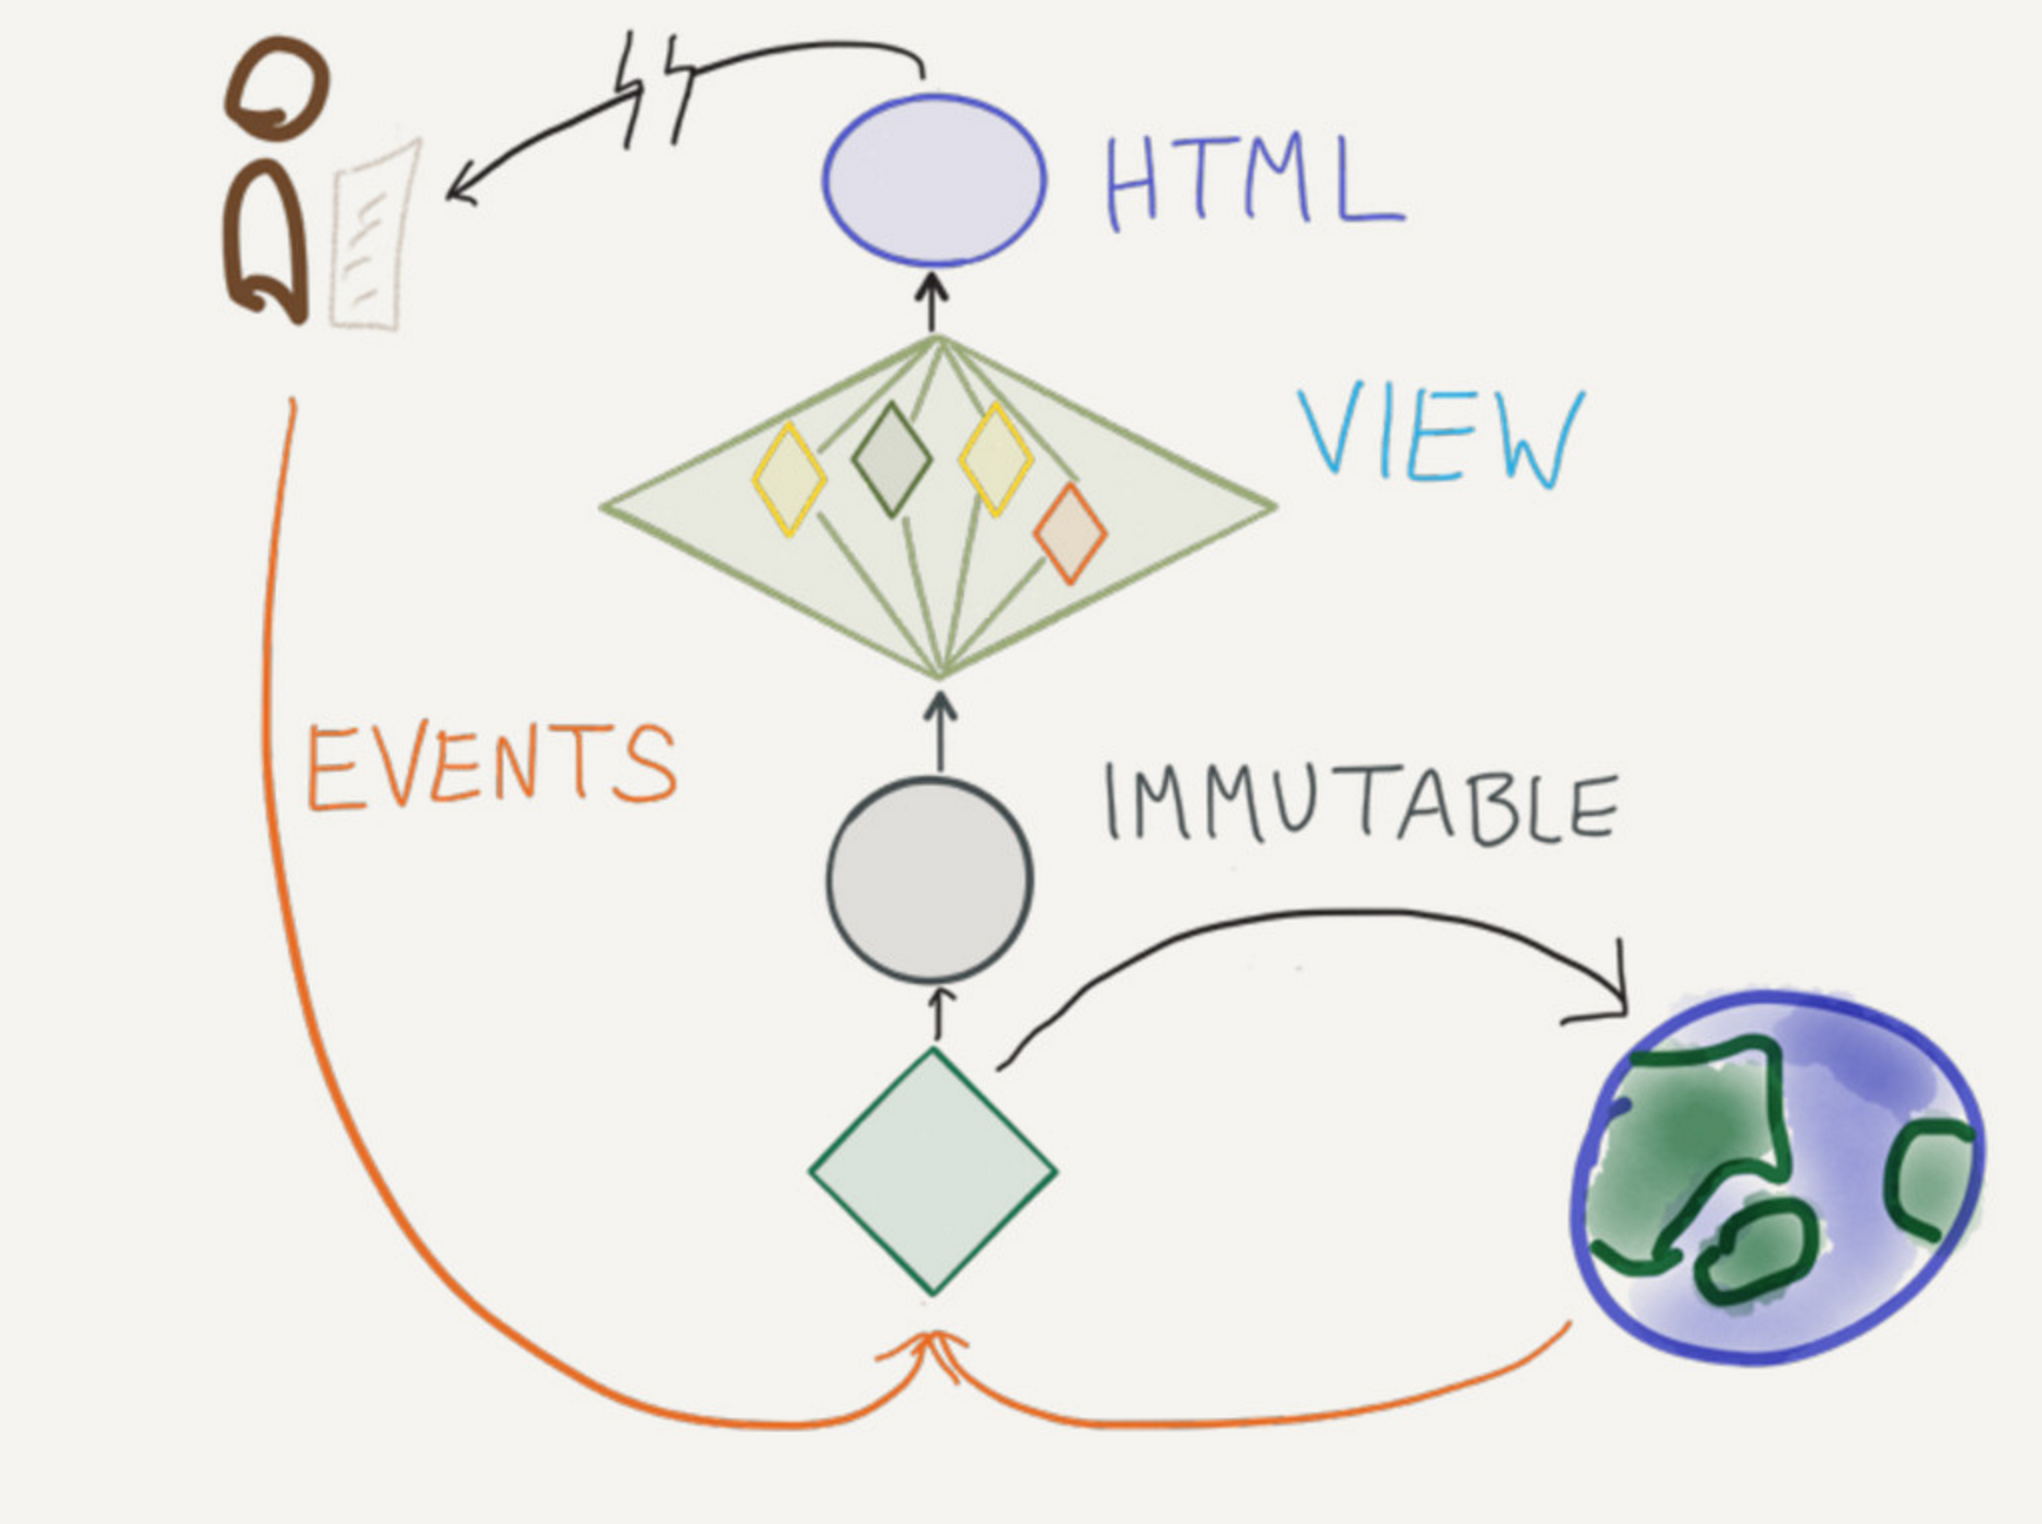 HTML
VIEW
EVENTS
IMMUTABLE